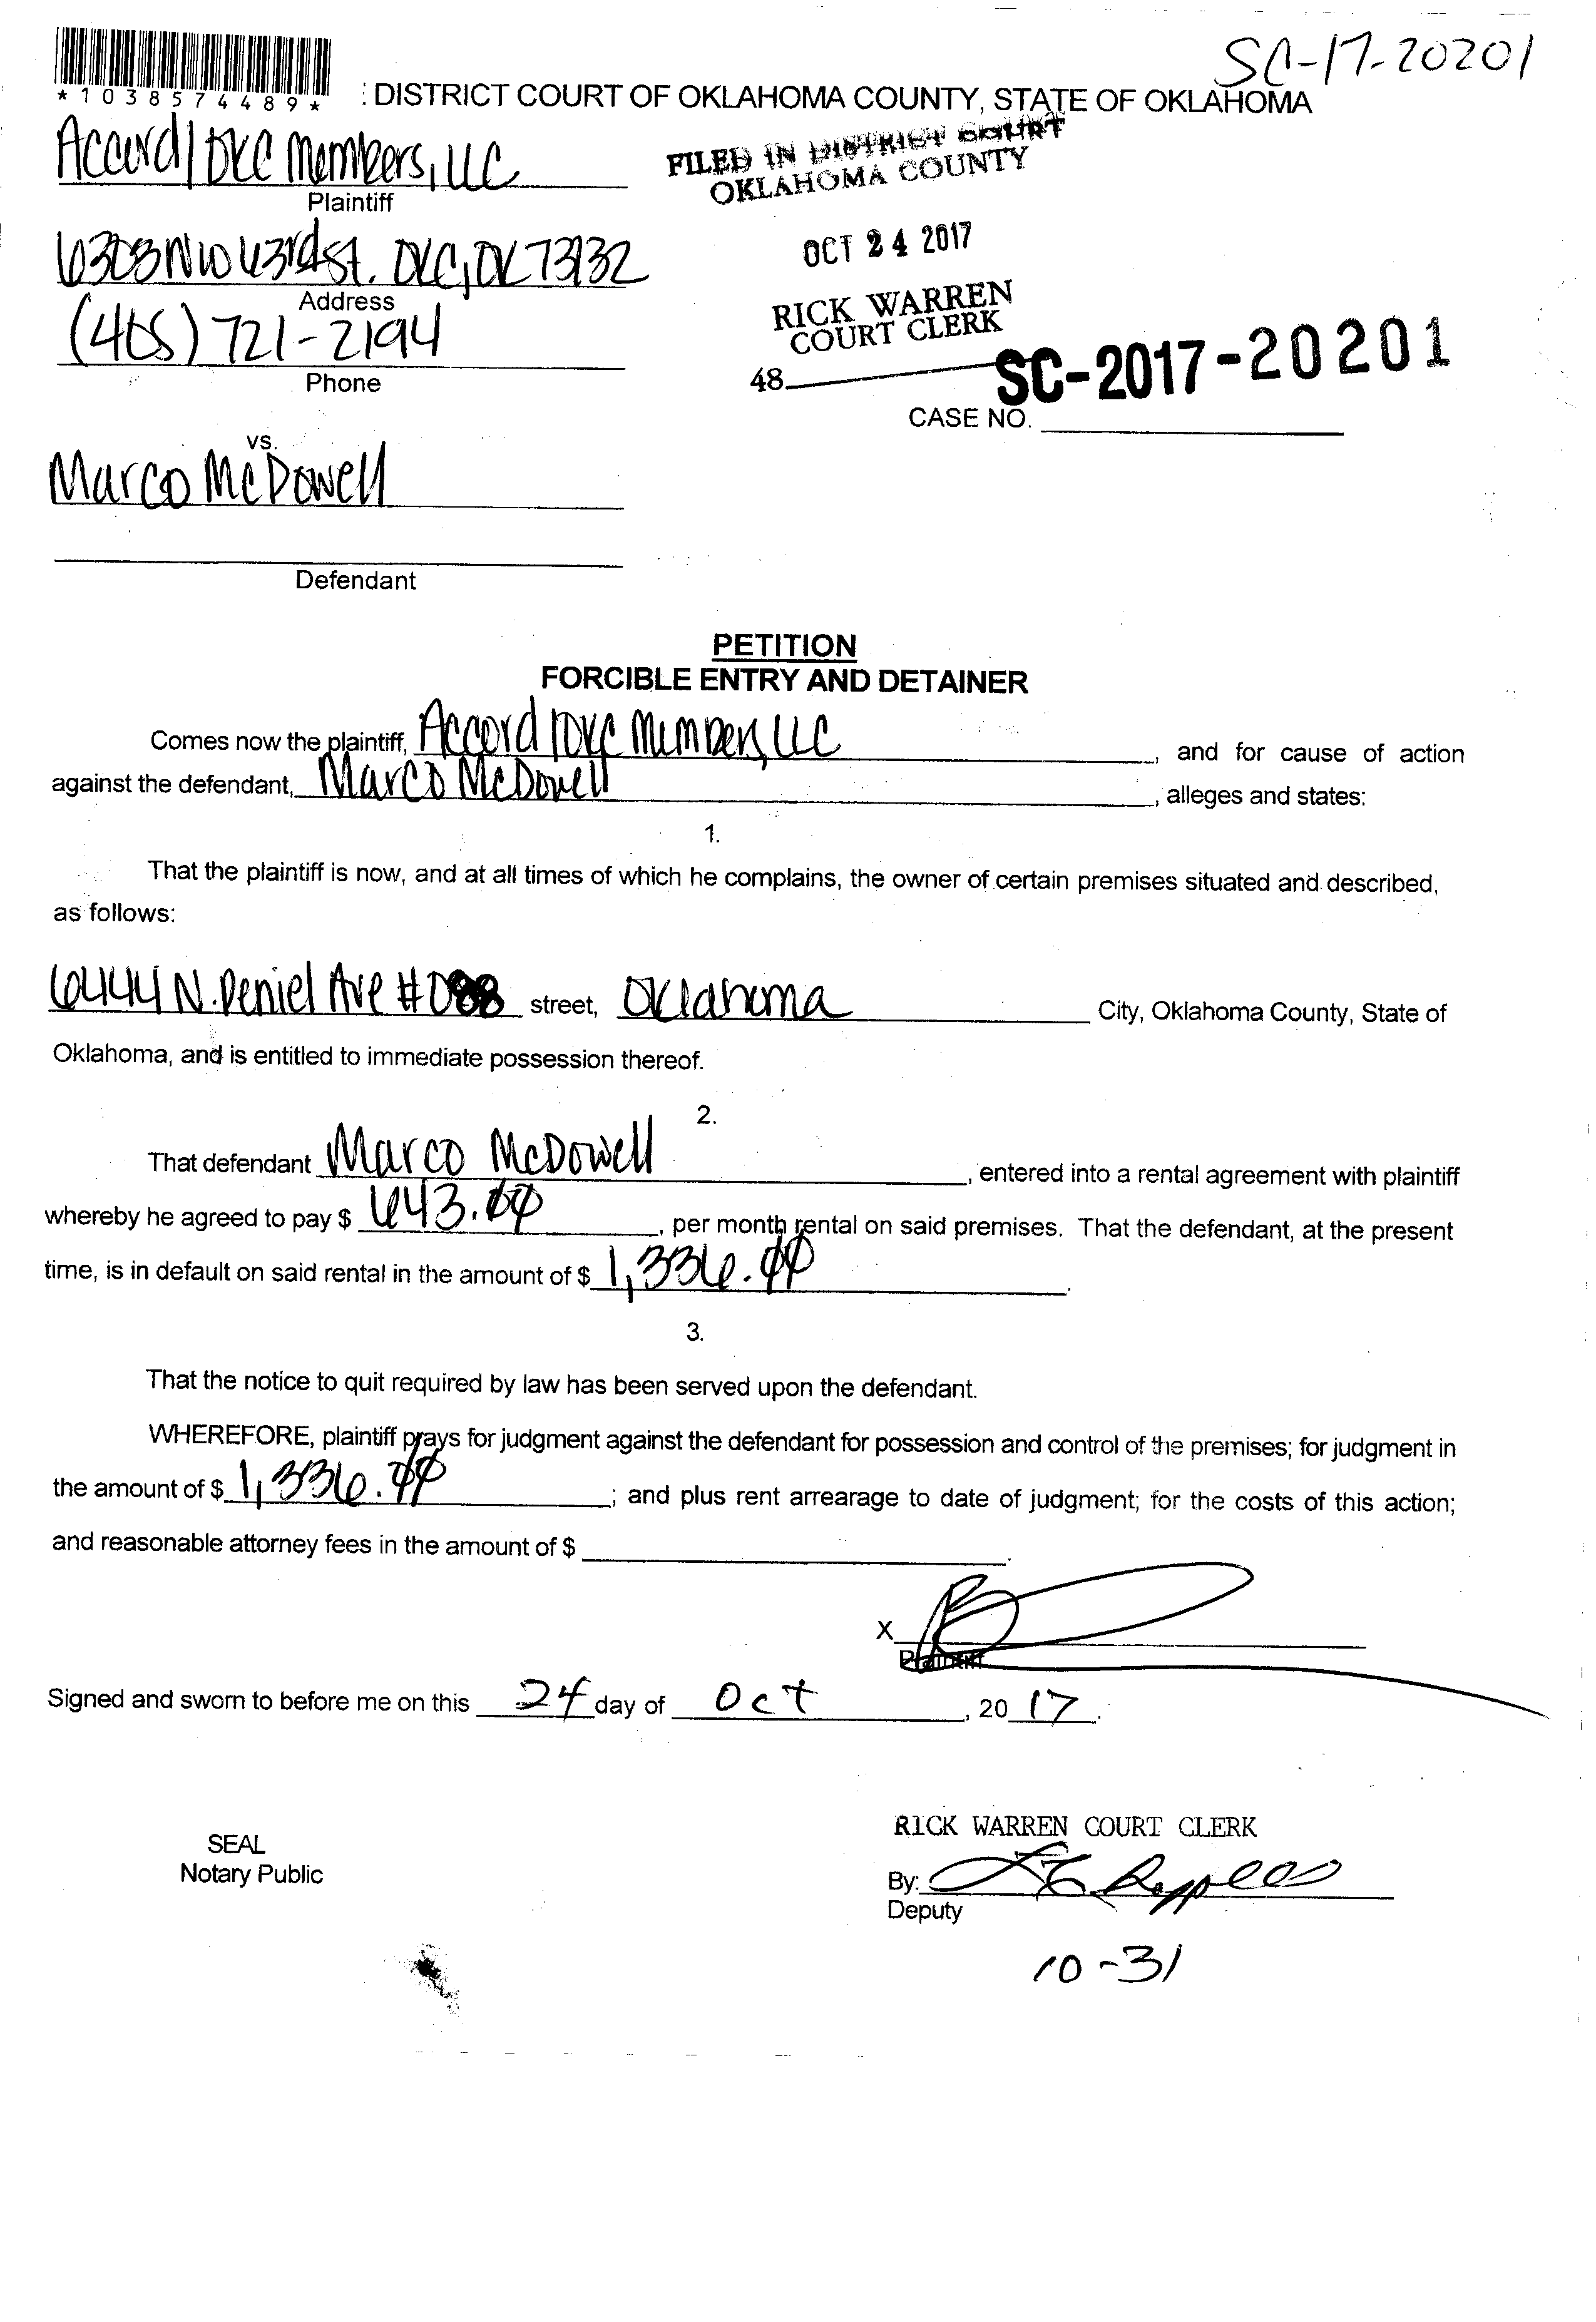 SC-17-20201
*1038574489*
: DISTRICT COURT OF OKLAHOMA COUNTY, STATE OF OKLAHOMA
Accord/OKC Members, LLC
Plaintiff
FILED IN DISTRICT COURT
OKLAHOMA COUNTY
6303 NW 63rd St. OKC, OK 73132
Address
OCT 24 2017
(405) 721-2194
Phone
RICK WARREN
COURT CLERK
48
SC-2017-20201
CASE NO.
vs.
Marco McDowell
Defendant
PETITION
FORCIBLE ENTRY AND DETAINER
Comes now the plaintiff, Accord/OKC Members, LLC, and for cause of action
against the defendant, Marco McDowell, alleges and states:
1.
That the plaintiff is now, and at all times of which he complains, the owner of certain premises situated and described,
as follows:
6444 N. Peniel Ave #088 street, Oklahoma City, Oklahoma County, State of
Oklahoma, and is entitled to immediate possession thereof.
2.
That defendant Marco McDowell, entered into a rental agreement with plaintiff
whereby he agreed to pay $ 643.00, per month rental on said premises. That the defendant, at the present
time, is in default on said rental in the amount of $ 1,336.00.
3.
That the notice to quit required by law has been served upon the defendant.
WHEREFORE, plaintiff prays for judgment against the defendant for possession and control of the premises; for judgment in
the amount of $ 1,336.00; and plus rent arrearage to date of judgment; for the costs of this action;
and reasonable attorney fees in the amount of $ .
X
Plaintiff
Signed and sworn to before me on this 24 day of Oct, 20 17.
RICK WARREN COURT CLERK
SEAL
Notary Public
By:
Deputy
10-31